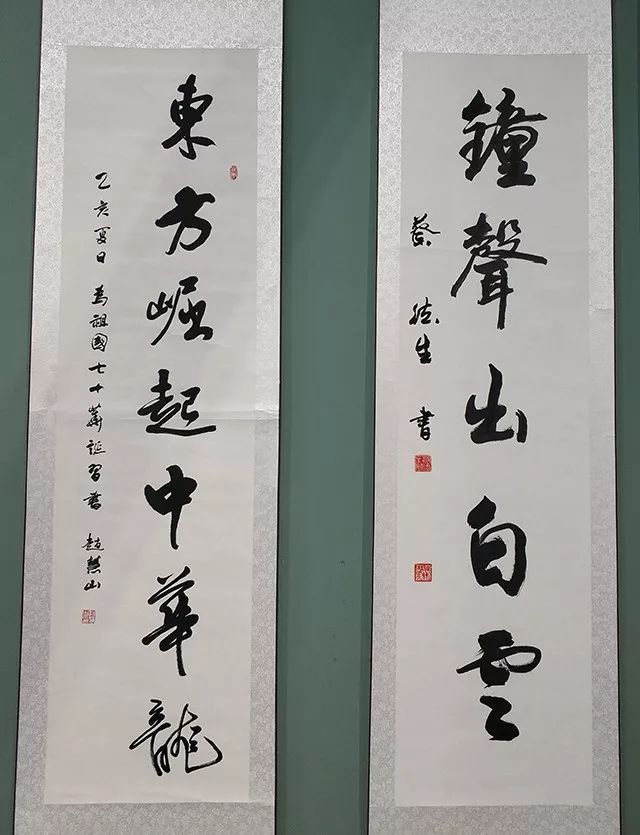 鐘聲出白雲
蔡德生 書
東方崛起中華龍
己亥夏日 為祖國七十華誕習書 趙慧山